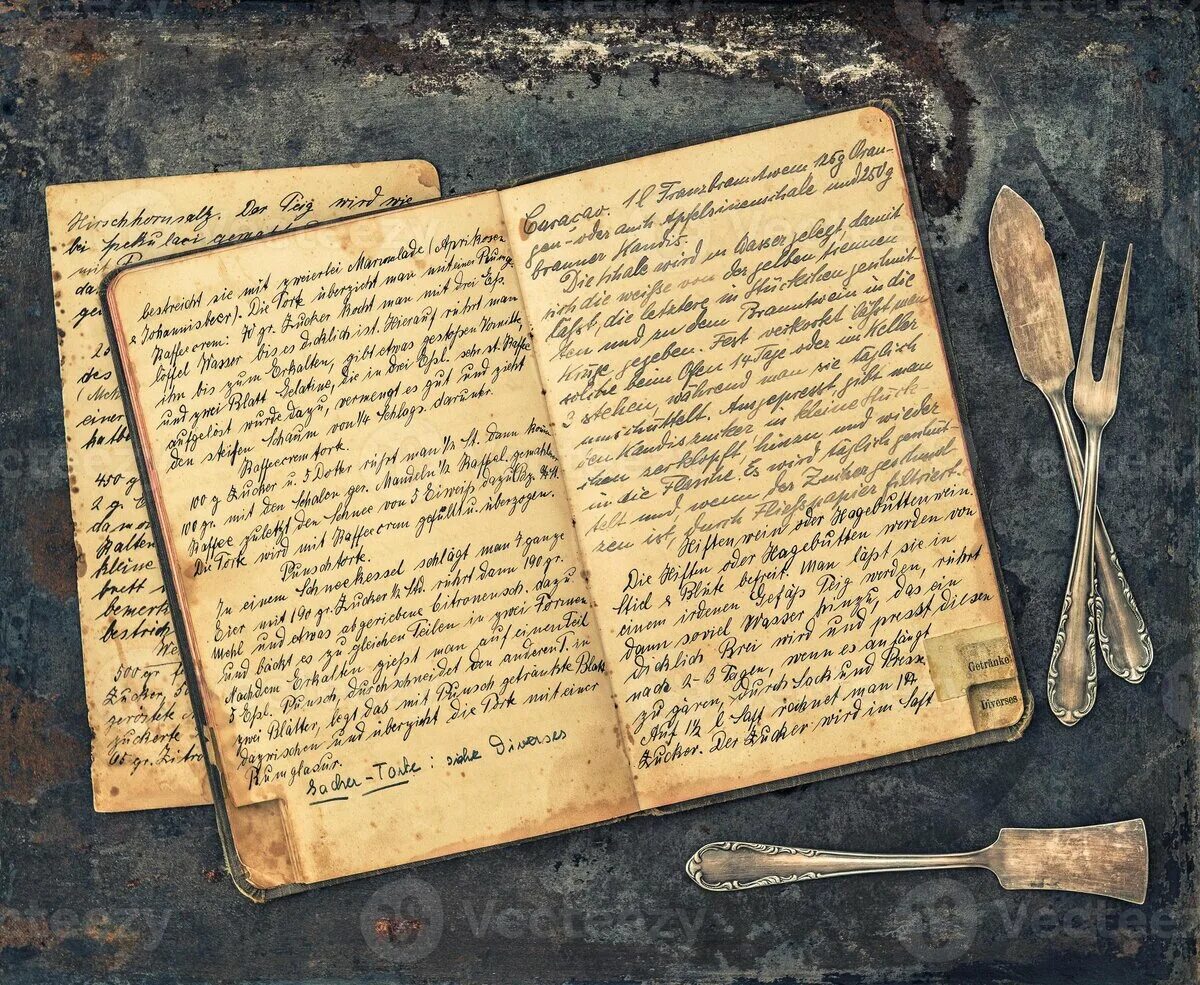 Hirschhornsalz. Der Teig wird wie
bei Spekulaci gemacht
450 g
2 g.
kleine
bestreich
500 gr.
Zucker, 50
65 gr. Zitro
bestreicht sie mit zweierlei Marmelade (Aprikosen
& Johannisbeer). Die Tork überzieht man mit einer Rumgl.
Kaffeecrem: 70 gr. Zucker kocht man mit drei Eßl.
löffel Wasser bis es dicklich ist. Hierauf rührt man
ihn bis zum Erkalten, gibt etwas gestoßen Vanille,
und zwei Blatt Gelatine, die in drei Eßl. sehr st. Kaffee
aufgelöst wurde dazu, vermengt es gut und zieht
den steifen Schaum von ¼ Schlags. darunter.
Kaffeecremtork.
100 g Zucker u. 5 Dotter rührt man ½ St. dann
100 gr. mit den Schalen ger. Mandeln ¼ Kaffel. gemahlen
Kaffee zuletzt den Schnee von 5 Eiweiß dazu
Die Tork wird mit Kaffeecrem gefüllt u. überzogen.
Punschtork.
In einem Schneekessel schlägt man 4 ganze
Eier mit 190 gr. Zucker ½ Std. rührt dann 190 gr.
Mehl und etwas abgeriebene Citronensch. dazu
und bäckt es zu gleichen Teilen in zwei Formen.
Nachdem Erkalten gießt man auf einen Teil
5 Eßl. Punsch, durchschneidet den anderen T. in
zwei Blätter, legt das mit Punsch getränkte Blatt
dazwischen und überzieht die Tork mit einer
Rumglasur.
Sacher-Torte: siehe Diverses
Curaçao. 1 l Franzbranntwein 125g Oran-
gen- oder auch Apfelsinenschale und 250 g
brauner Kandis.
Die Schale wird in Wasser gelegt damit
sich die weiße von der gelben trennen
läßt, die letztere in Stückchen geschnit-
ten und zu dem Branntwein in die
Kruke gegeben. Fest verkorkt läßt man
solche beim Ofen 14 Tage oder im Keller
3 stehen, während man sie täglich
umschüttelt. Ausgepresst, gibt man
den Kandiszucker in kleine Stück-
chen zerklopft, hinzu und wieder
in die Flasche. Es wird täglich geschüt-
telt und wenn der Zucker geschmol
zen ist, durch Fließpapier filtriert.
Hiftenwein oder Hagebuttenwein.
Die Hiften oder Hagebutten werden von
Stiel & Blüte befreit. Man läßt sie in
einem irdenen Gefäß Teig werden, rührt
dann soviel Wasser hinzu, das ein
dicklich Brei wird und presst diesen
nach 2-3 Tagen, wenn es anfängt
zu gären, durch Sack und Presse.
Auf 1½ l Saft rechnet man 1 ℔
Zucker. Der Zucker wird im Saft
Getränke
Diverses
Vecteezy
Vecteezy